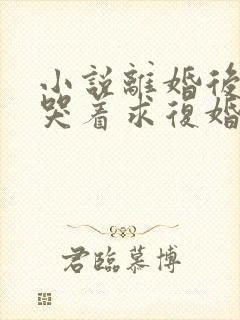 小說離婚後
哭着求復婚
君臨慕博